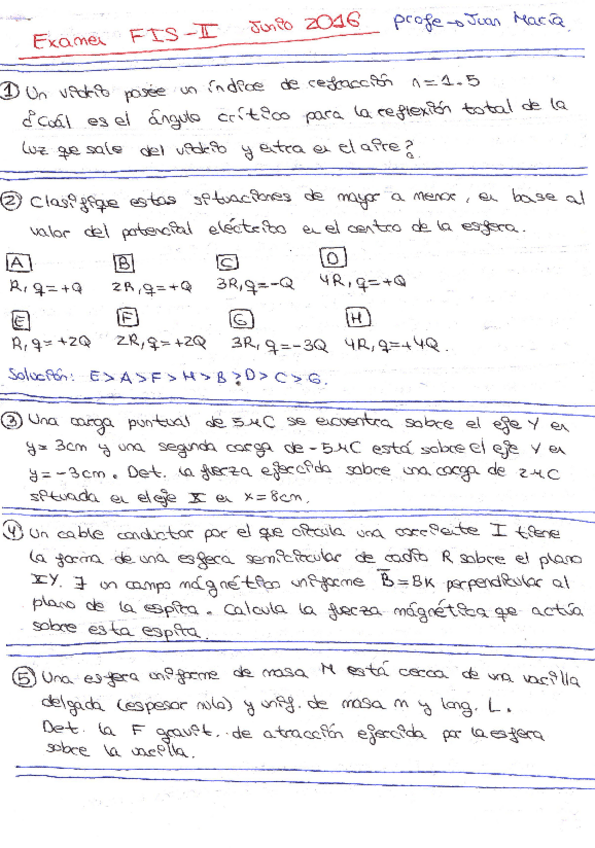 Examen FIS-II Junio 2016 profe → Juan María.
① Un vidrio posee un índice de refracción n=1.5
¿Cuál es el ángulo crítico para la reflexión total de la
luz que sale del vidrio y entra en el aire?
② Clasifique estas situaciones de mayor a menor, en base al
valor del potencial eléctrico en el centro de la esfera.
A B C D
R, q=+Q 2R, q=+Q 3R, q=-Q 4R, q=+Q
E F G H
R, q=+2Q 2R, q=+2Q 3R, q=-3Q 4R, q=+4Q.
Solución: E > A > F > H > B > D > C > G.
③ Una carga puntual de 5μC se encuentra sobre el eje Y en
y=3cm y una segunda carga de -5μC está sobre el eje Y en
y=-3cm. Det. la fuerza ejercida sobre una carga de 2μC
situada en el eje X en x=8cm.
④ Un cable conductor por el que circula una corriente I tiene
la forma de una esfera semicircular de radio R sobre el plano
XY. ∃ un campo mágnético uniforme B̅=BK perpendicular al
plano de la espira. Calcula la fuerza mágnética que actúa
sobre esta espira.
⑤ Una esfera uniforme de masa M está cerca de una varilla
delgada (espesor nulo) y unif. de masa m y long. L.
Det. la F gravit. de atracción ejercida por la esfera
sobre la varilla.